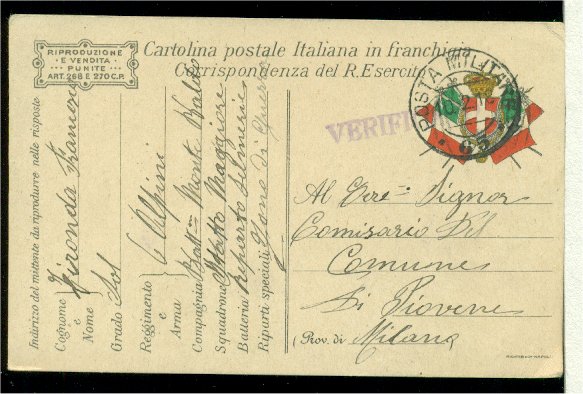 RIPRODUZIONE
E VENDITA
PUNITE
ART. 268 E 270 C.P.
Cartolina postale Italiana in franchigia
Corrispondenza del R. Esercito
POSTA MILITARE
VERIFI
Indirizzo del mittente da riprodurre nelle risposte
Cognome Tironda
e
Nome
Grado Sol
Reggimento 6 Alpini
e
Arma
Compagnia Batt= Monte Baldo
Squadrone Maggiore
Batteria Reparto Salmerie
Riparti speciali Zona di Guerra
Al Signor
Comisario Del
Comune
Di Piovene
(Prov. di Milano